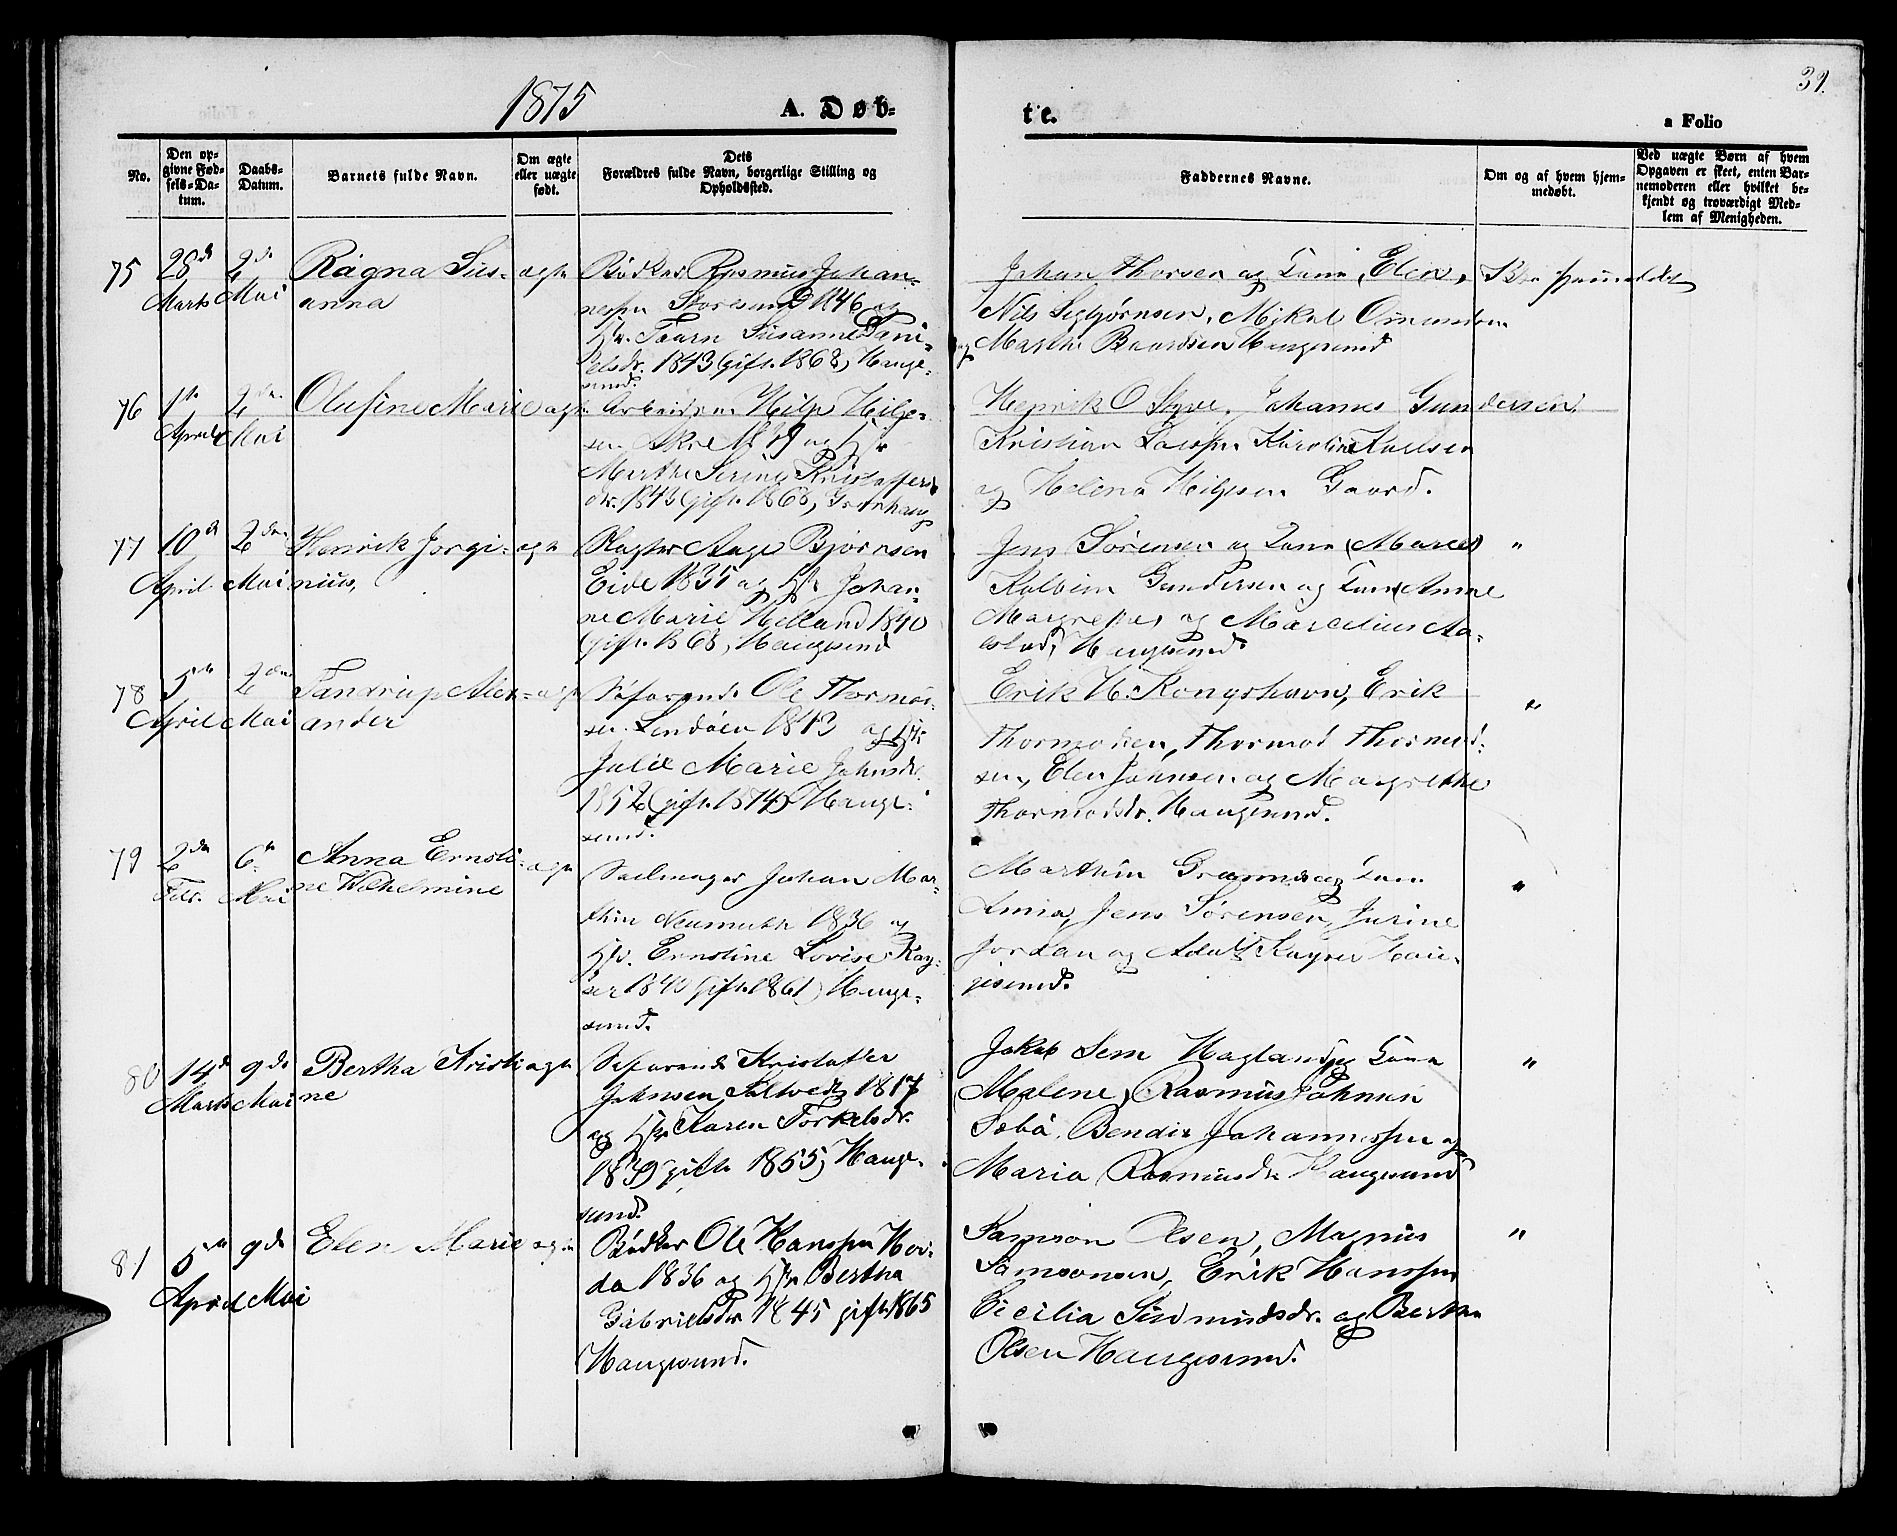 1875
A. Døb-
te.
39.
a Folio
No.
Den op-
givne Fød-
sels-Da-
tum.
Daabs-
Datum.
Barnets fulde Navn.
Om ægte
eller uægte
født.
Dets
Forældres fulde Navn, borgerlige Stilling og
Opholdssted.
Faddernes Navne.
Om og af hvem hjem-
medøbt.
Ved uægte Børn af hvem
Opgaven er skeet, enten Bar-
nemoderen eller hvilket be-
kjendt og troværdigt Med-
lem af Menigheden.
75
28de Marts
2den Mai
Ragna Sus-
anna
ægte
Bødker Rasmus Johan-
nessen Storesund 1846 og
Susanne Dani-
elsdr. 1843 (gift. 1868) Hauge-
sund.
Johan Thorsen og Kone Elen,
Nils Mikal
og Marthe Baardsen Haugesund
76
1te April
2den Mai
Olufine Marie
ægte
Arbeidsm. Hilje Hilje-
sen Akre 1839 og Hstr
Marthe Serine Kristoffers
dr. 1843 (gift. 1868)
Henrik O Johannes Gundersen,
Kristian Karoline
og Helena Hiljesen Gaard.
77
10de April
2den Mai
Henrik Jørgi-
nius,
ægte
Slagter Aage Bjørnsen
Eide 1835 og Hstr Johan-
ne Marie Helland 1840
(gift. 1868) Haugesund
Jens Sørensen og Kone (Maren)
Kolbein Gundersen og Kone (Anne
og Marcelius Aa-
Haugesund.
"
78
5te April
2den Mai
Tandrup Alex-
ander
ægte
Søfarende Ole Thormod-
sen Lindøen 1843 og Hstr
Julie Marie Johnsdr.
1852 (gift. 1874) Hauge-
sund.
Erik H. Kongshavn, Erik
Thormodsen, Thormod Thormod-
sen, Elen Johnsen og Margrethe
Thormodsdr. Haugesund.
"
79
2den Febr.
6te Mai
Anna Ernsti-
ne Wilhelmine
ægte
Seilmager Johan Mar-
thin Neumuth 1836 og
Hstr. Ernstine Lovise Kay-
ser 1840 (gift. 1861) Hauge-
sund.
Marthin og Kone
Jens Sørensen, Jurine
Jordan og Adolf Kayser Hau-
gesund.
"
80
14de Marts
9de Mai
Bertha Kristi
ne
ægte
Søfarende Kristoffer
Johnsen 1817
og Hstr Karen Torkelsdr.
1839 gift 1855, Hauge-
sund.
Jakob Sem Hagland og Kone
Malene, Rasmus Johnsen
Sæbø, Bendix Johannessen og
Maria Rasmusdr Haugesund
"
81
5te April
9de Mai
Elen Marie
ægte
Bødker Ole Hanssen Hov-
da 1836 og Hstr Bertha
Gabrielsdr 1845 gift. 1865
Haugesund.
Samson Olsen, Magnus
Samsonsen, Erik Hanssen
Cicilia Simundsdr. og Bertha
Olsen Haugesund.
"